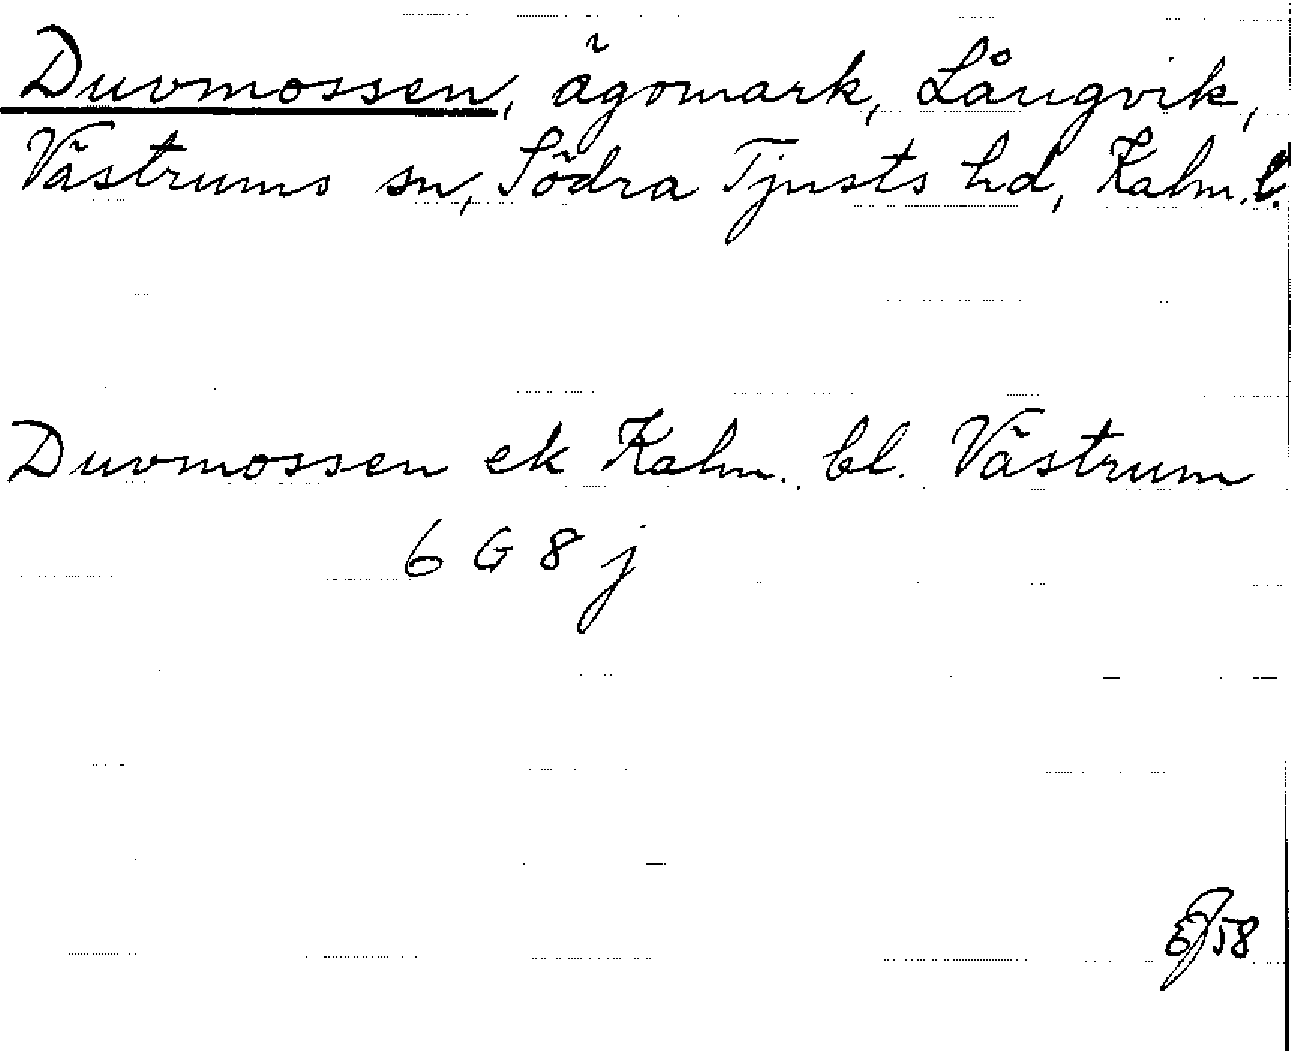 Duvmossen, ägomark, Långvik,
Västrums sn, Södra Tjusts hd, Kalm.l.
Duvmossen ek Kalm. bl. Västrum
6 G 8 j
58